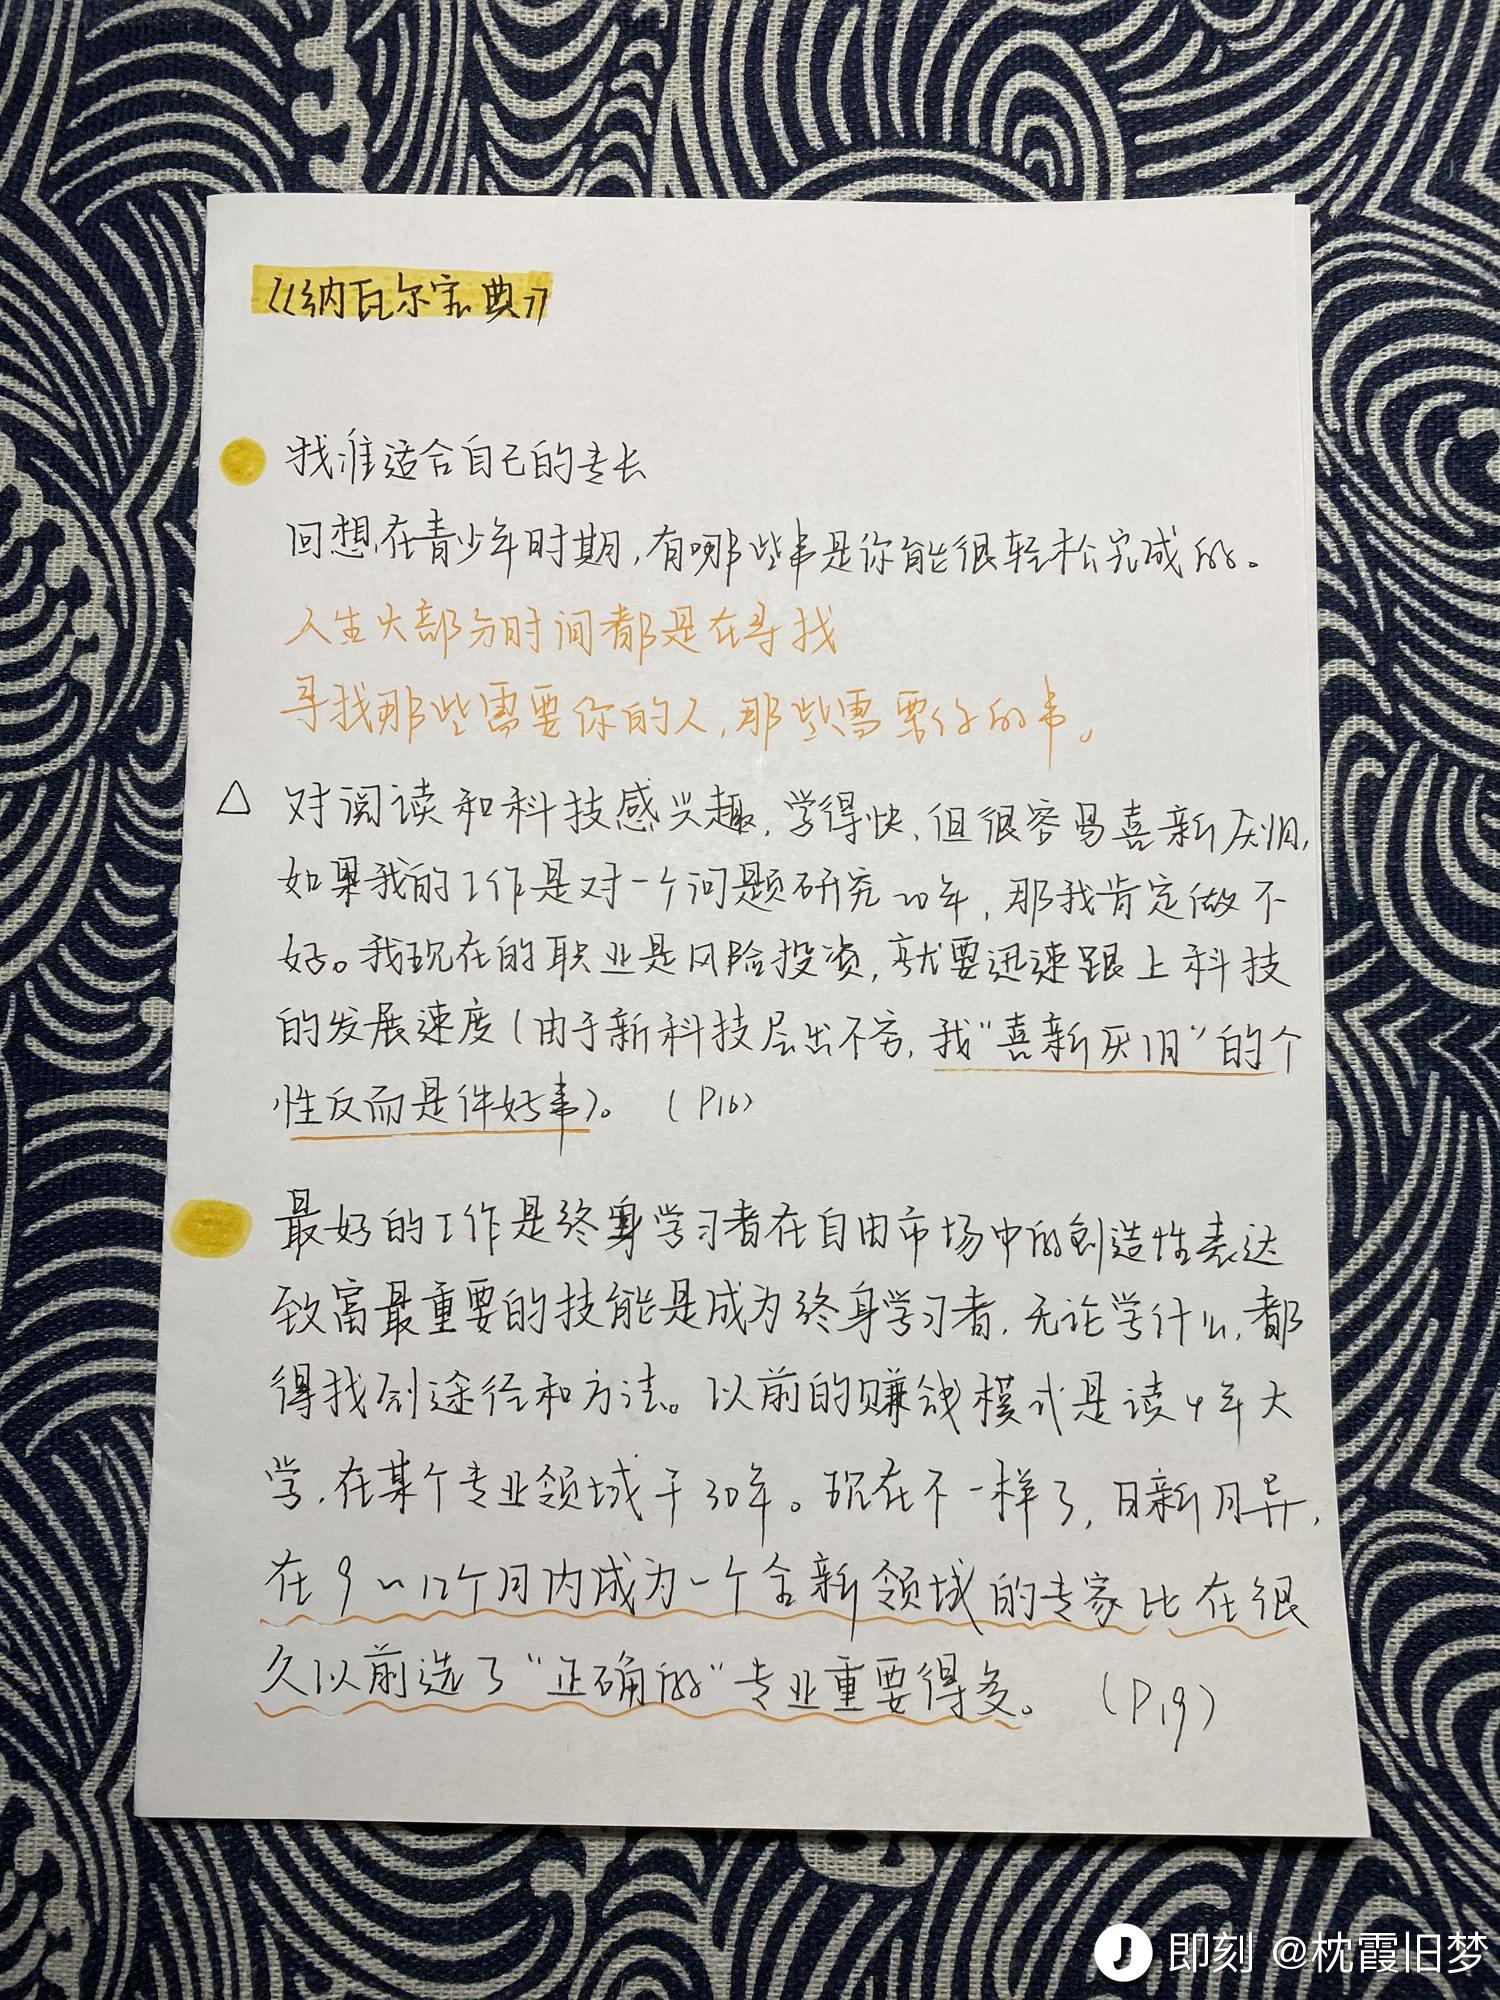 《纳瓦尔宝典》
找准适合自己的专长
回想在青少年时期,有哪些事是你能很轻松完成的。
人生大部分时间都是在寻找
寻找那些需要你的人,那些需要你的事。
△ 对阅读和科技感兴趣,学得快,但很容易喜新厌旧,
如果我的工作是对一个问题研究20年,那我肯定做不
好。我现在的职业是风险投资,就要迅速跟上科技
的发展速度(由于新科技层出不穷,我"喜新厌旧"的个
性反而是件好事)。 (P16)
最好的工作是终身学习者在自由市场中的创造性表达
致富最重要的技能是成为终身学习者,无论学什么,都
得找到途径和方法。以前的赚钱模式是读4年大
学,在某个专业领域干30年。现在不一样了,日新月异,
在9~12个月内成为一个全新领域的专家比在很
久以前选了"正确的"专业重要得多。 (P19)
即刻 @枕霞旧梦